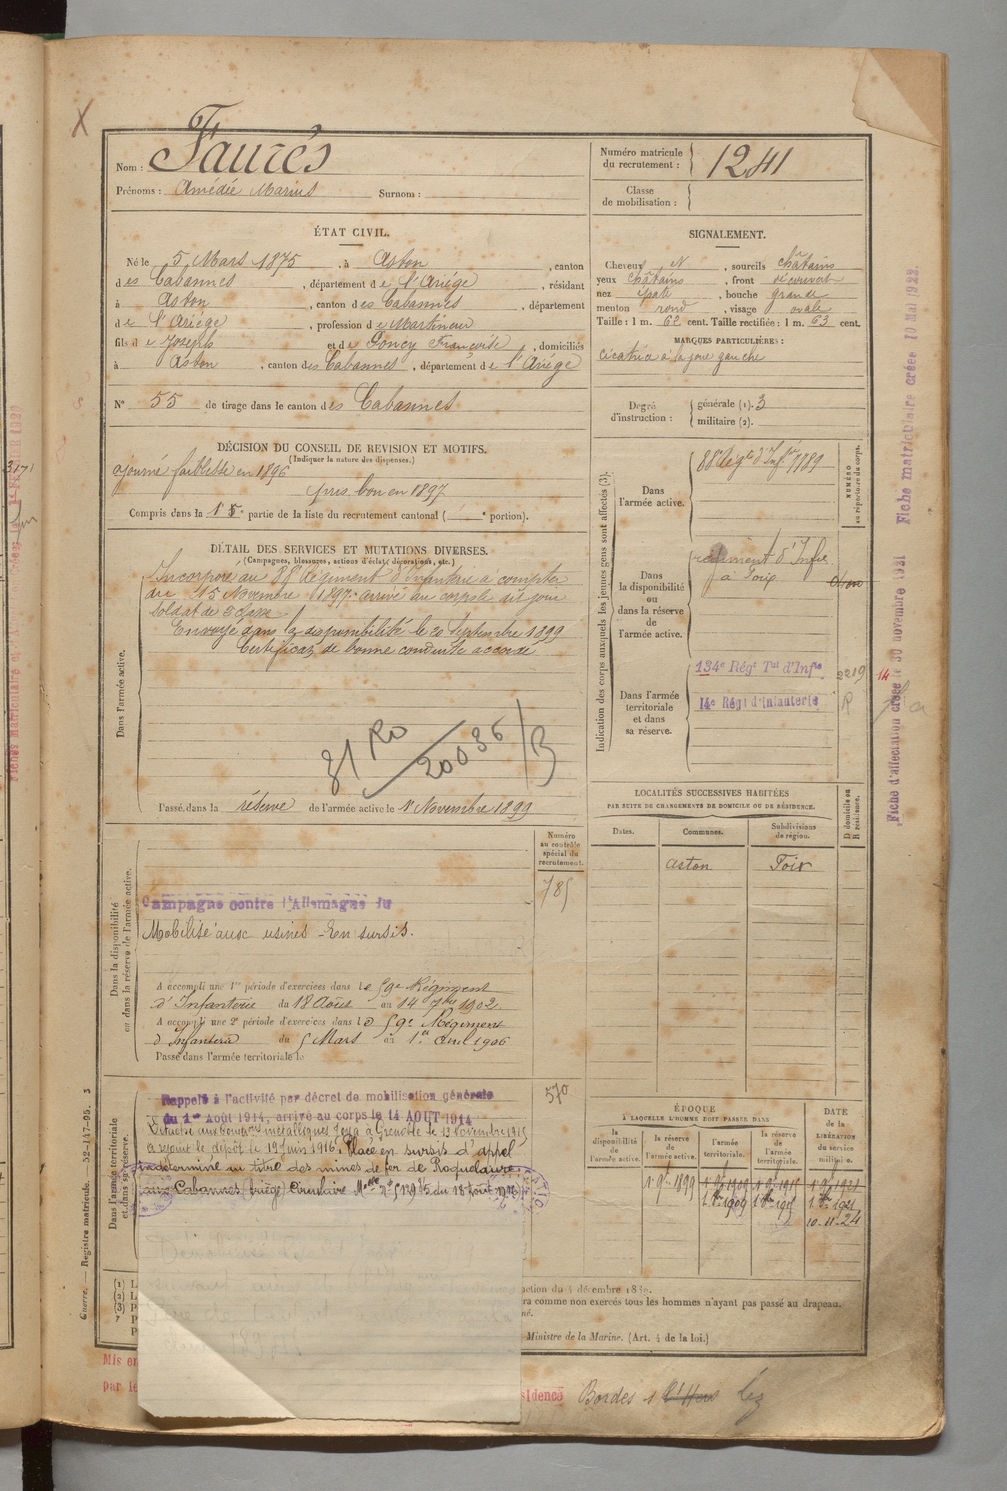 Nom : Faurés
Prénoms : Amédée Marius Surnom :
Numéro matricule du recrutement : 1241
Classe de mobilisation :
ÉTAT CIVIL.
Né le 5 Mars 1875, à Aston, canton
des Cabannes, département de l'Ariége, résidant
à Aston, canton des Cabannes, département
de l'Ariége, profession de Martineur
fils de Joseph et de Poncy Françoise, domiciliés
à Aston, canton des Cabannes, département de l'Ariége
N° 55 de tirage dans le canton des Cabannes
SIGNALEMENT.
Cheveux N, sourcils châtains
yeux châtains, front découvert
nez épaté, bouche grande
menton rond, visage ovale
Taille : 1 m. 62 cent. Taille rectifiée : 1 m. 63 cent.
MARQUES PARTICULIÈRES :
Cicatrice à la joue gauche
Degré d'instruction : générale (1). 3
militaire (2).
DÉCISION DU CONSEIL DE REVISION ET MOTIFS.
(Indiquer la nature des dispenses.)
ajourné faiblesse en 1896
pris bon en 1897
Compris dans la 1 5e partie de la liste du recrutement cantonal ( e portion).
DÉTAIL DES SERVICES ET MUTATIONS DIVERSES.
(Campagnes, blessures, actions d'éclat, décorations, etc.)
Dans l'armée active.
Incorporé au 88e Régiment d'Infanterie à compter
du 15 Novembre 1897. arrivé au corps le dit jour
Soldat de 2e classe
Envoyé dans la disponibilité le 20 Septembre 1899
Certificat de bonne conduite accordé
81 RO 20036/B
Passé dans la réserve de l'armée active le 1er Novembre 1899
Indication des corps auxquels les jeunes gens sont affectés (3).
NUMÉRO au répertoire du corps.
Dans l'armée active.
88e Régt d'Infie 7789
Dans la disponibilité ou dans la réserve de l'armée active.
régiment d'Infie
à Foix
Dans l'armée territoriale et dans sa réserve.
134e Régt Tal d'Infie 2219
14e Régt d'Infanterie R
14
LOCALITÉS SUCCESSIVES HABITÉES
PAR SUITE DE CHANGEMENTS DE DOMICILE OU DE RÉSIDENCE.
Dates. Communes. Subdivisions de région. D. domicile ou R. résidence.
Aston Foix
Numéro au contrôle spécial du recrutement.
785
Dans la disponibilité ou dans la réserve de l'armée active.
Campagne contre l'Allemagne du
Mobilisé aux usines - En sursis.
A accompli une 1re période d'exercices dans le 59e Régiment
d'Infanterie du 18 Août au 14 7bre 1902
A accompli une 2e période d'exercices dans le 59e Régiment
d'Infanterie du 5 Mars au 1er Avril 1906
Passé dans l'armée territoriale le
570
Dans l'armée territoriale et dans sa réserve.
Rappelé à l'activité par décret de mobilisation générale
du 1er Août 1914, arrivé au corps le 14 AOUT 1914
Détaché aux à Grenoble le 13 Novembre 1915
a rejoint le dépôt le 19 juin 1916. Placé en sursis d'appel
indéterminé au titre des mines de fer de Roquelaure
aux Cabannes (Ariège) Circulaire du 18 Août 1916
ÉPOQUE
À LAQUELLE L'HOMME DOIT PASSER DANS
la disponibilité de l'armée active. la réserve de l'armée active. l'armée territoriale. la réserve de l'armée territoriale.
DATE de la LIBÉRATION du service militaire.
1er 9bre 1899 1er 9bre 1909 1er 9bre 1915 1er 9bre 1921
1er 8bre 1909 1er 8bre 1915 1er 8bre 1921
10-11-24
(1) L
(2) L
(3) P
ction du 4 décembre 1889.
ra comme non exercés tous les hommes n'ayant pas passé au drapeau.
Ministre de la Marine. (Art. 4 de la loi.)
Mis en
par le
sidence Bordes s/ l'Hers Lez
Guerre. — Registre matricule. 52-147-95. 3
Fiche matriculaire créée 10 Mai 1922.
Fiche d'affectation créée le 30 novembre 1921